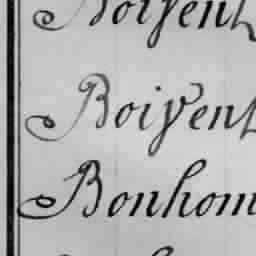 Boivent
Boivent
Bonhom